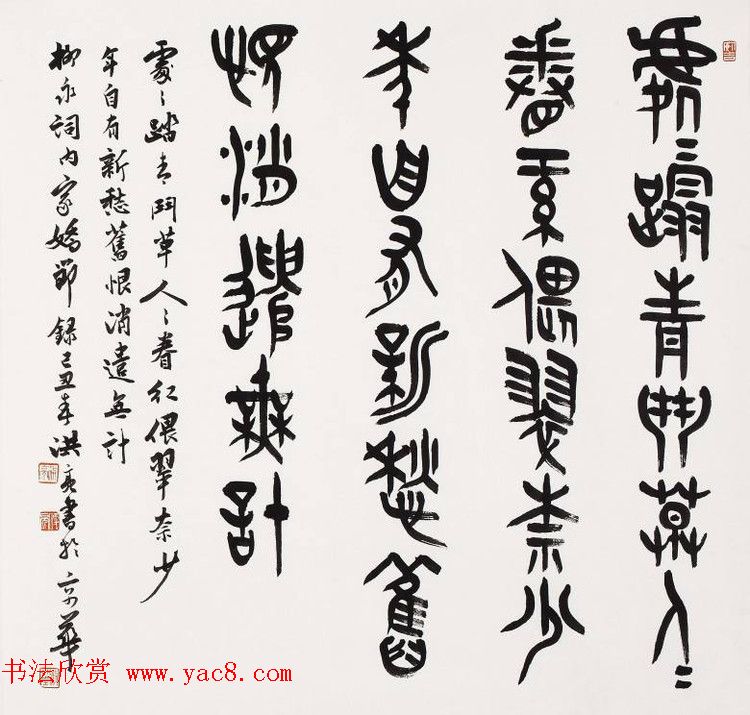 處〻蹋青鬥草人〻
眷紅偎翠柰少
年自有新愁舊
恨消遣無計
處〻踏青鬥草人〻眷紅偎翠奈少
年自有新愁舊恨消遣無計
柳永詞內家嬌節錄己丑年洪亮書於京華
书法欣赏 www.yac8.com